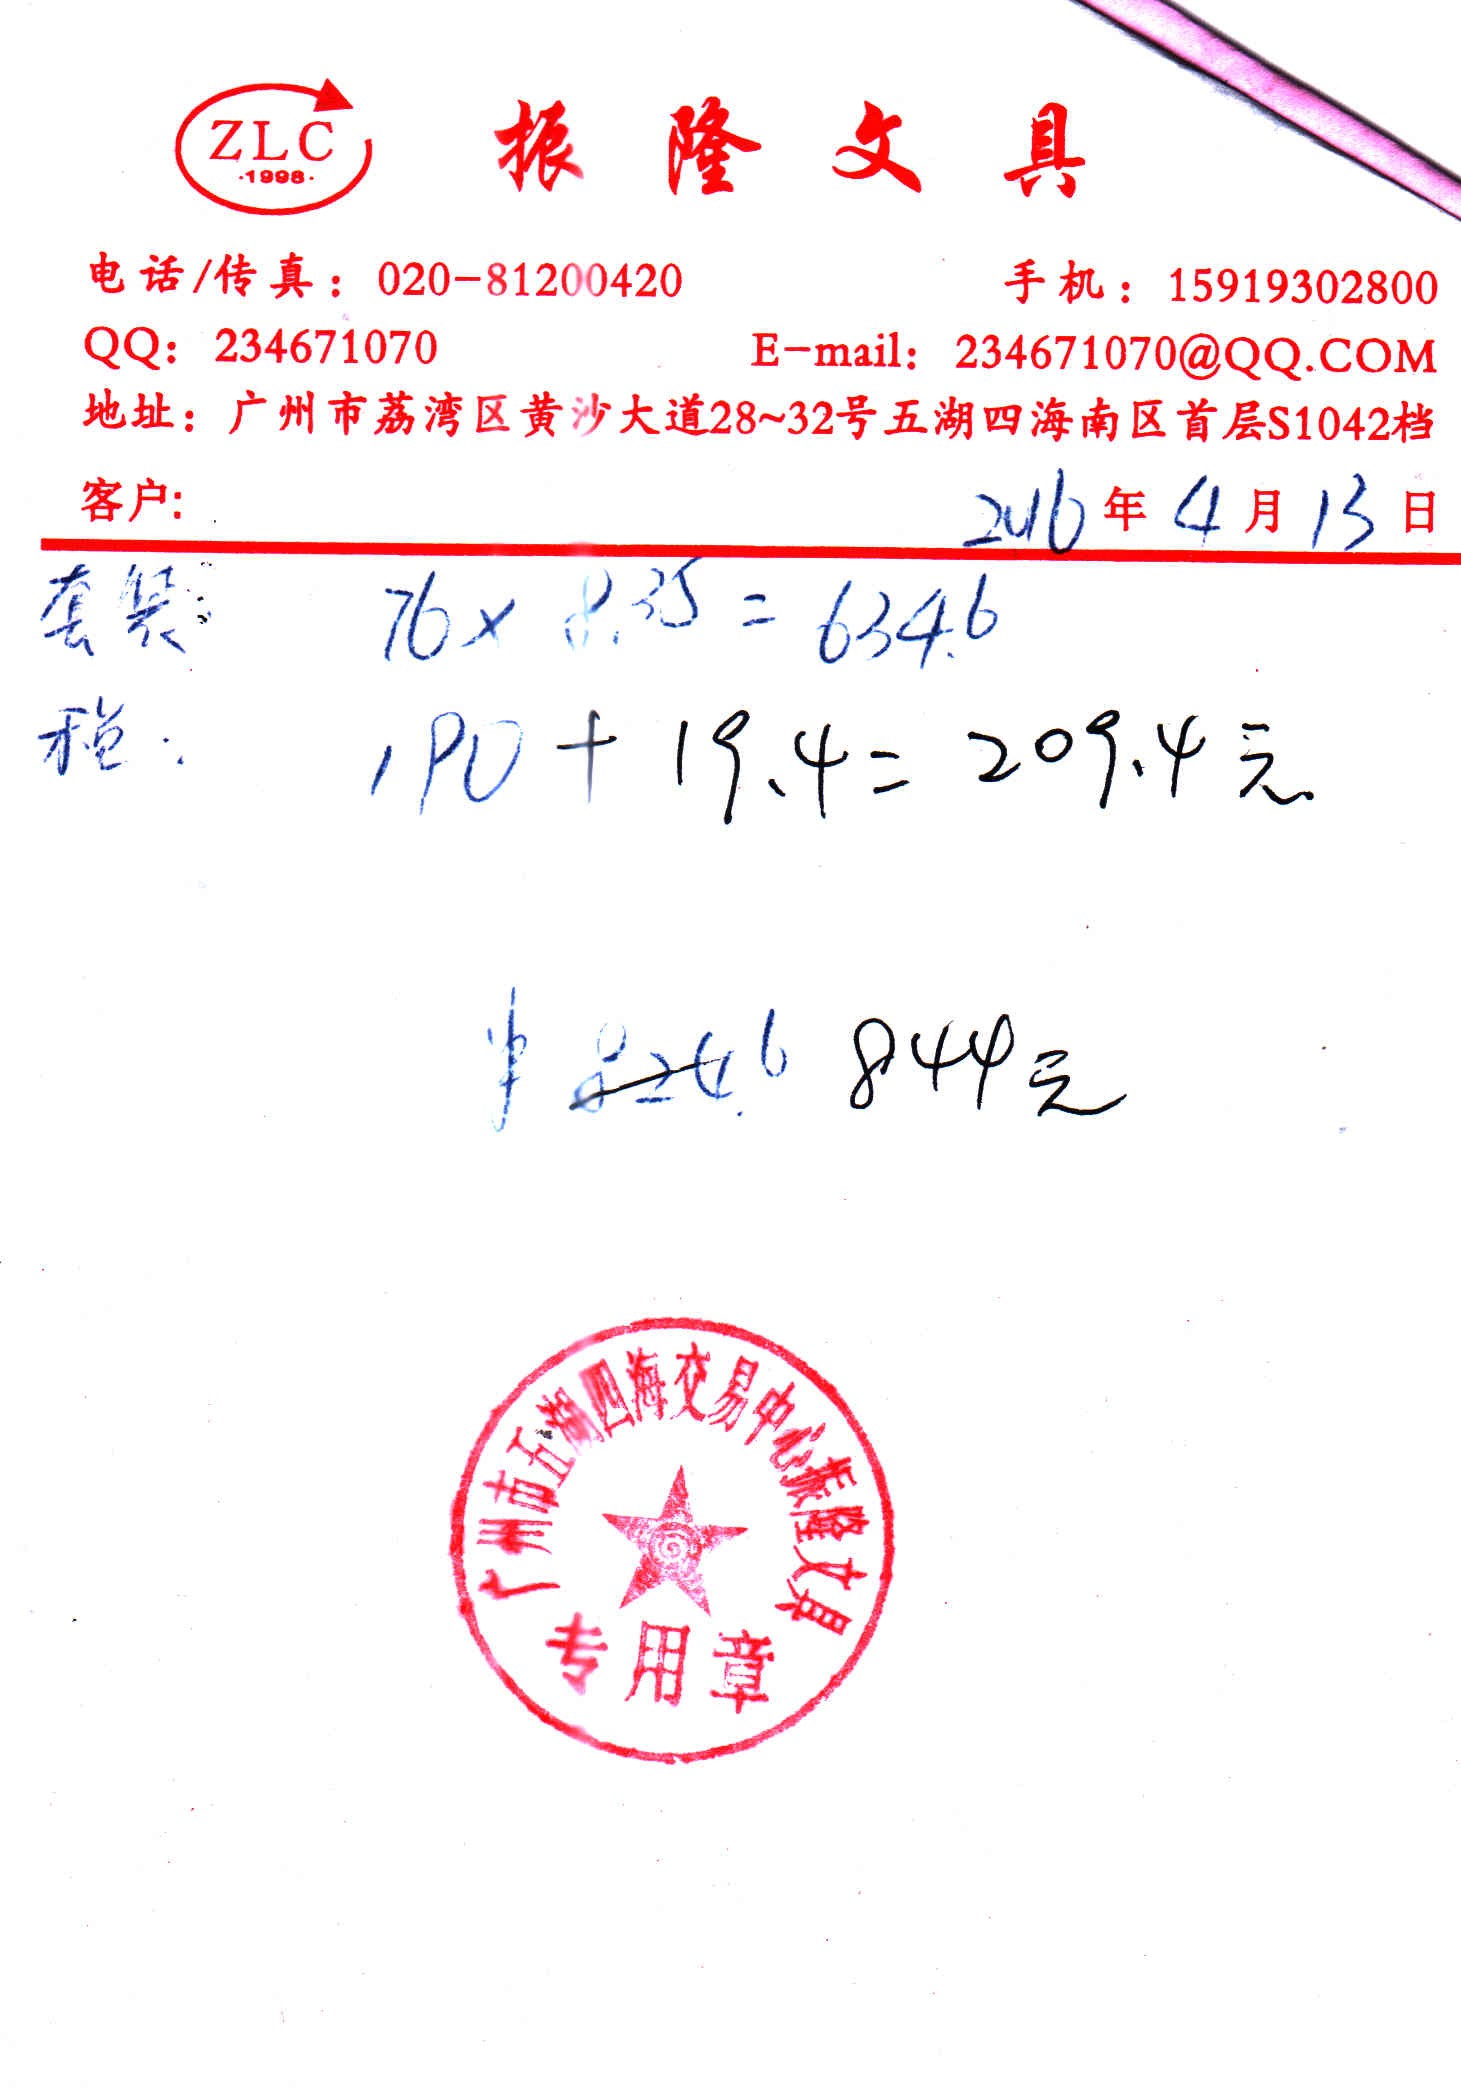 ZLC
·1998·
振隆文具
电话/传真：020-81200420 手机：15919302800
QQ：234671070 E-mail：234671070@QQ.COM
地址：广州市荔湾区黄沙大道28~32号五湖四海南区首层S1042档
客户: 2016年4月13日
套装: 76×8.35=634.6
税: 190+19.4=209.4元
824.6 844元
广州市五湖四海交易中心振隆文具
专用章